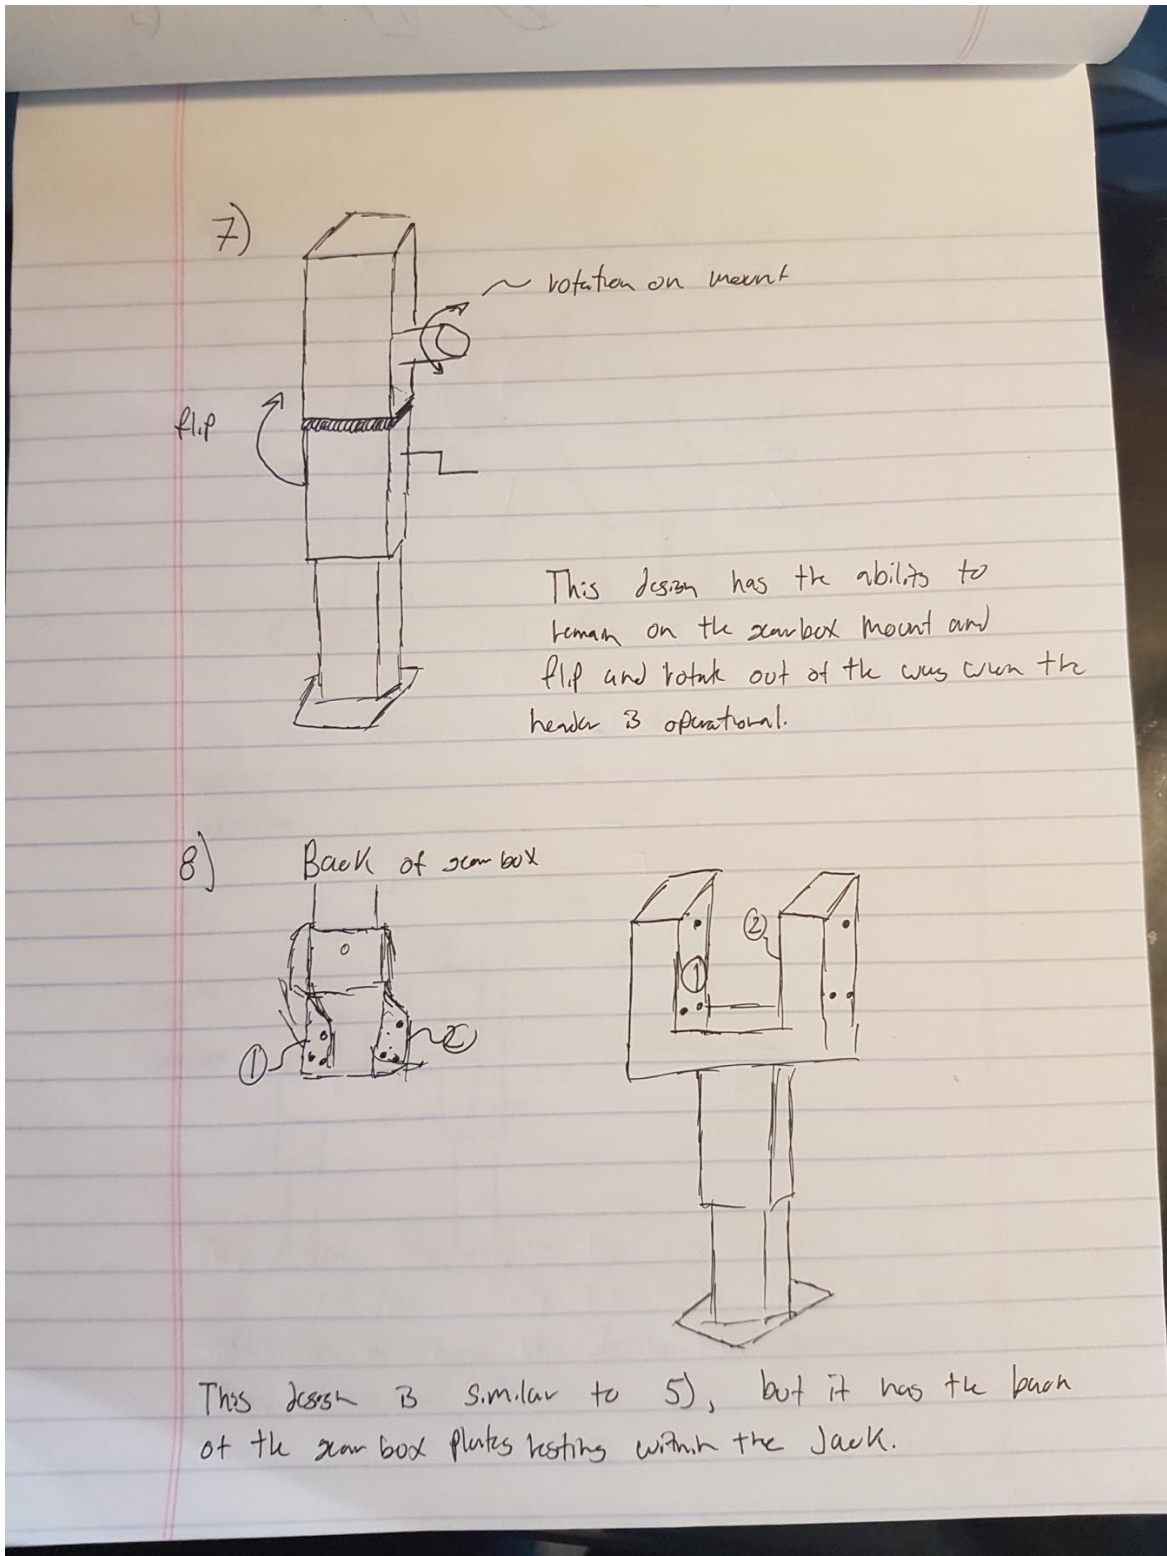 7)
~ rotation on mount
flip
This design has the ability to
remain on the gearbox mount and
flip and rotate out of the way when the
header is operational.
8) Back of gear box
②
①
① 2
This design is similar to 5), but it has the back
of the gear box plates resting within the Jack.